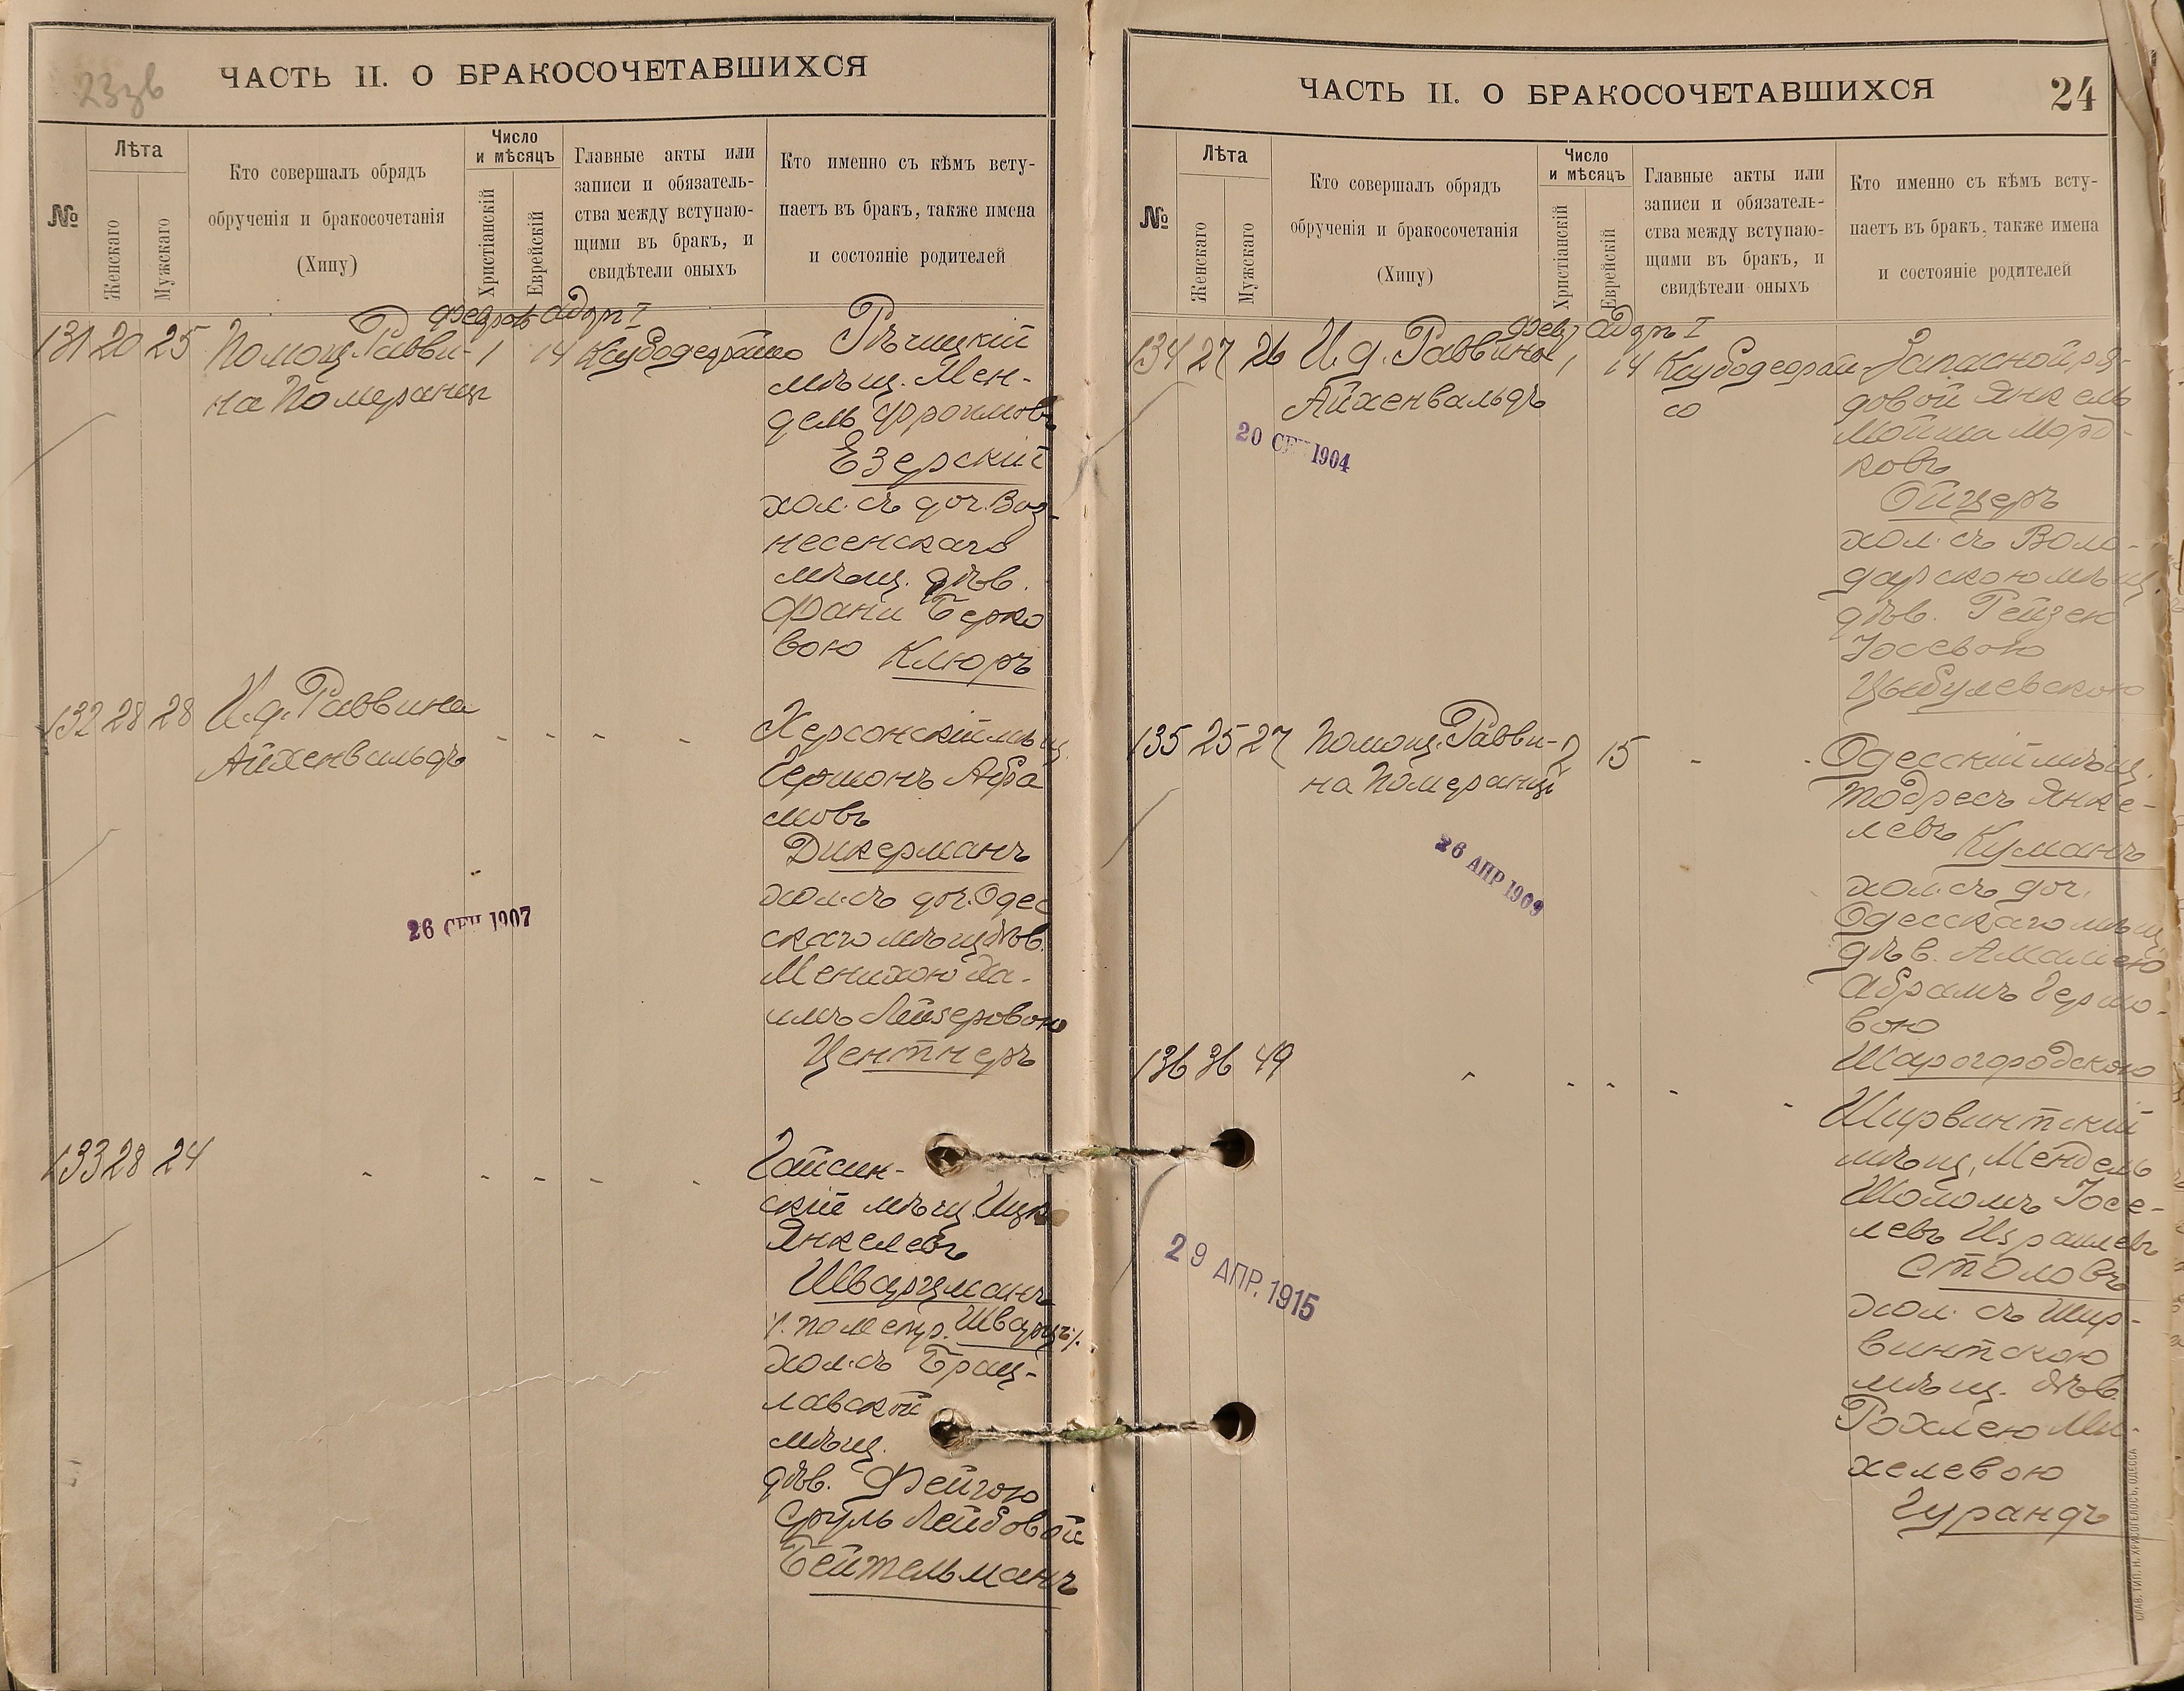 23зв
ЧАСТЬ II. О БРАКОСОЧЕТАВШИХСЯ
№
Лѣта
Женскаго
Мужскаго
Кто совершалъ обрядъ
обрученія и бракосочетанія
(Хипу)
Число
и мѣсяцъ
Христіанскій
Еврейскій
Главные акты или
записи и обязатель-
ства между вступаю-
щими въ бракъ, и
свидѣтели оныхъ
Кто именно съ кѣмъ всту-
паетъ въ бракъ, также имена
и состояніе родителей
Адаръ I
131 20 25 Помощ. Равви- 1 14
на Померанцъ
Рѣчицкій
мѣщ. Мен-
дель Фроимовъ
Езерскій
хол. съ доч. Воз-
несенскаго
мѣщ. дѣв.
Фани Берко
вою Клюръ
132 28 28 И.д. Раввина - - - -
Айхенвальдъ
26 СЕН 1907
Херсонскій мѣщ.
Германъ Абра
мовъ
Дикерманъ
хол. съ доч. Одес
скаго мѣщ. дѣв.
Менихою Ха-
имъ Лейзеровою
Центнеръ
133 28 24 - - - - -
Гайсин-
скій мѣщ. Ицко
Янкелевъ
Шварцманъ
хол. съ Брац-
лавской
мѣщ.
дѣв. Фейгою
Сруль Лейбовой
Бейтельманъ
ЧАСТЬ II. О БРАКОСОЧЕТАВШИХСЯ
24
№
Лѣта
Женскаго
Мужскаго
Кто совершалъ обрядъ
обрученія и бракосочетанія
(Хипу)
Число
и мѣсяцъ
Христіанскій
Еврейскій
Главные акты или
записи и обязатель-
ства между вступаю-
щими въ бракъ, и
свидѣтели оныхъ
Кто именно съ кѣмъ всту-
паетъ въ бракъ, также имена
и состояніе родителей
Адаръ I
134 27 26 И.д. Раввина 1 14
Айхенвальдъ
20 СЕН 1904
Запасной ря-
довой Янкель
Мойша Морд-
ковъ
Ойцеръ
хол. съ Воло-
дарскою мѣщ.
дѣв. Рейзею
Іосевою
Цыбулевскою
135 25 27 Помощ. Равви- 2 15 - -
на Померанцъ
26 АПР 1909
Одесскій мѣщ.
Тодресъ Янке-
левъ Куманъ
хол. съ доч.
Одесскаго мѣщ.
дѣв. Амаліею
Абрамъ Гершо-
вою
Шарогородскою
136 36 49 - - - - -
29 АПР. 1915
Ширвинтскій
мѣщ. Мендель
Шоломъ Іосе-
левъ Израилевъ
Столовъ
хол. съ Шир-
винтскою
мѣщ. дѣв.
Рохлею Ми-
хелевою
Гурандъ